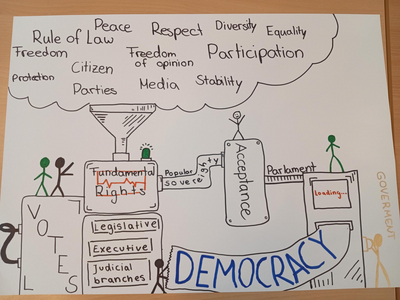 Peace
Respect
Diversity
Equality
Rule of Law
Freedom
Freedom
of opinion
Participation
Citizen
Protection
Parties
Media
Stability
Fundamental
Rights
Popular
sovereignty
Acceptance
Parlament
Loading...
GOVERMENT
VOTES
L
Legislative
Executive
Judicial
branches
DEMOCRACY